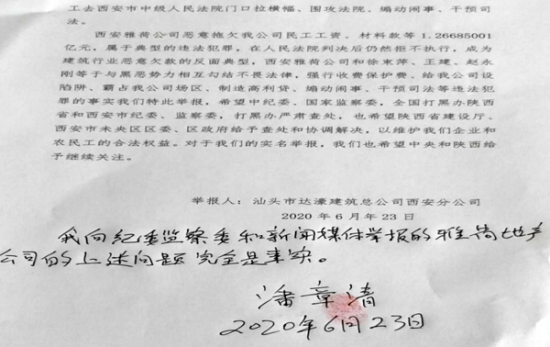 工去西安市中级人民法院门口拉横幅、围攻法院、煽动闹事、干预司
法。
西安雅荷公司恶意拖欠我公司民工工资、材料款等1.26685001
亿元,属于典型的违法犯罪,在人民法院判决后仍然拒不执行,成为
建筑行业恶意欠款的反面典型,西安雅荷公司和徐東萍、王建、赵永
刚等于与黑恶势力相互勾结不畏法律,强行收费保护费、给我公司设
陷阱、霸占我公司场区、制造高利贷、煽动闹事、干预司法等违法犯
罪的事实我们特此举报,希望中纪委、国家监察委,全国打黑办陕西
省和西安市纪委、监察委,打黑办严肃查处,也希望陕西省建设厅、
西安市未央区区委、区政府给予查处和协调解决,以维护我们企业和
农民工的合法权益。对于我们的实名举报,我们也希望中央和陕西给
予继续关注。
举报人:汕头市达濠建筑总公司西安分公司
2020年6月23日
我向纪委监察委和新闻媒体举报的雅荷地产
公司的上述问题完全是事实。
潘章清
2020年6月23日